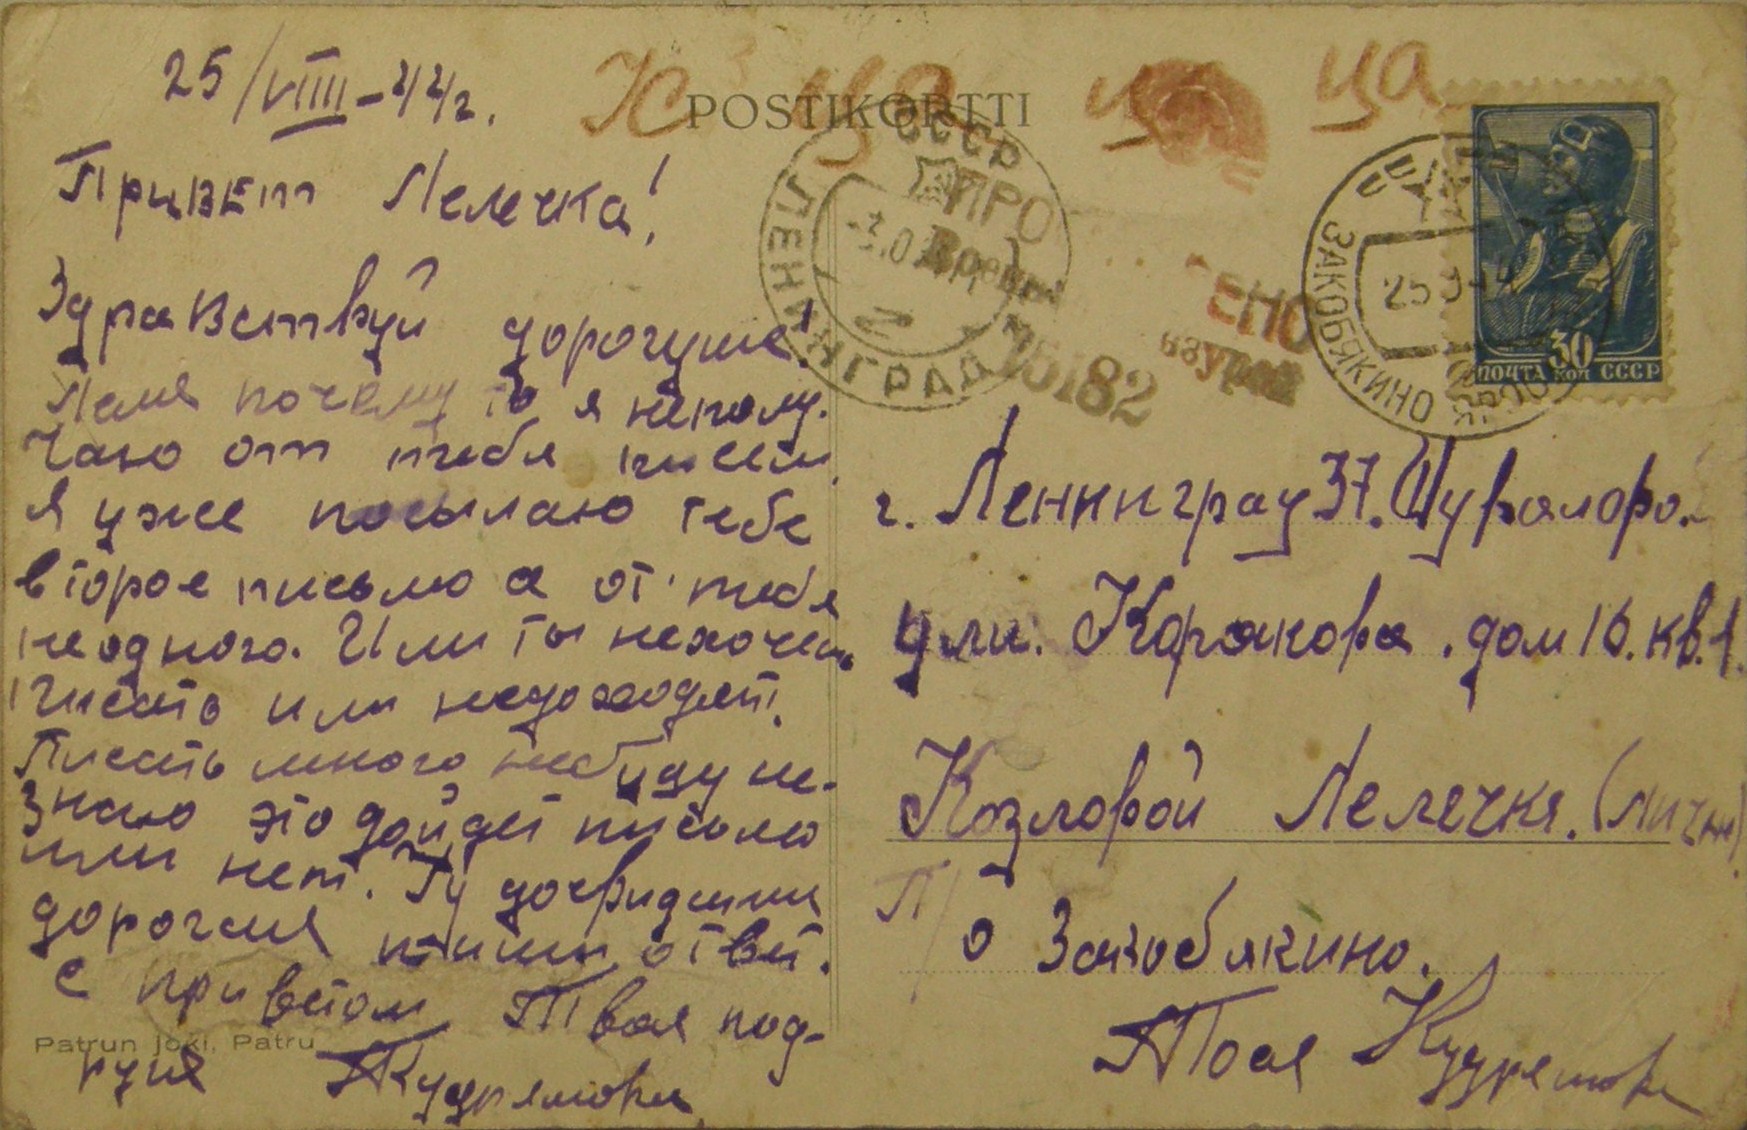 25/VIII-44г.
Привет Лелечка!
Здравствуй дорогуша!
Леля почему то я неполу-
чаю от тебя писем.
Я уже посылаю тебе
второе письмо а от тебя
неодного. Или ты нехочешь
писать или недоходят.
Писать много небуду не-
знаю это дойдет письмо
или нет. Ту досвидания
дорогая пиши ответ.
С приветом Твоя под-
руга Т Кудряшова
Patrun Joki, Patru
POSTIKORTTI
СССР
ЛЕНИНГРАД
ПРО ЕНО
Военн нзурой
15182
ЗАКОБЯКИНО
25 9
30
ПОЧТА КОП СССР
г. Ленинград 37.
ули. Корякова. дом 16. кв. 1.
Козловой Лелечке. (лично)
П/о Закобякино.
Тося Кудряшова